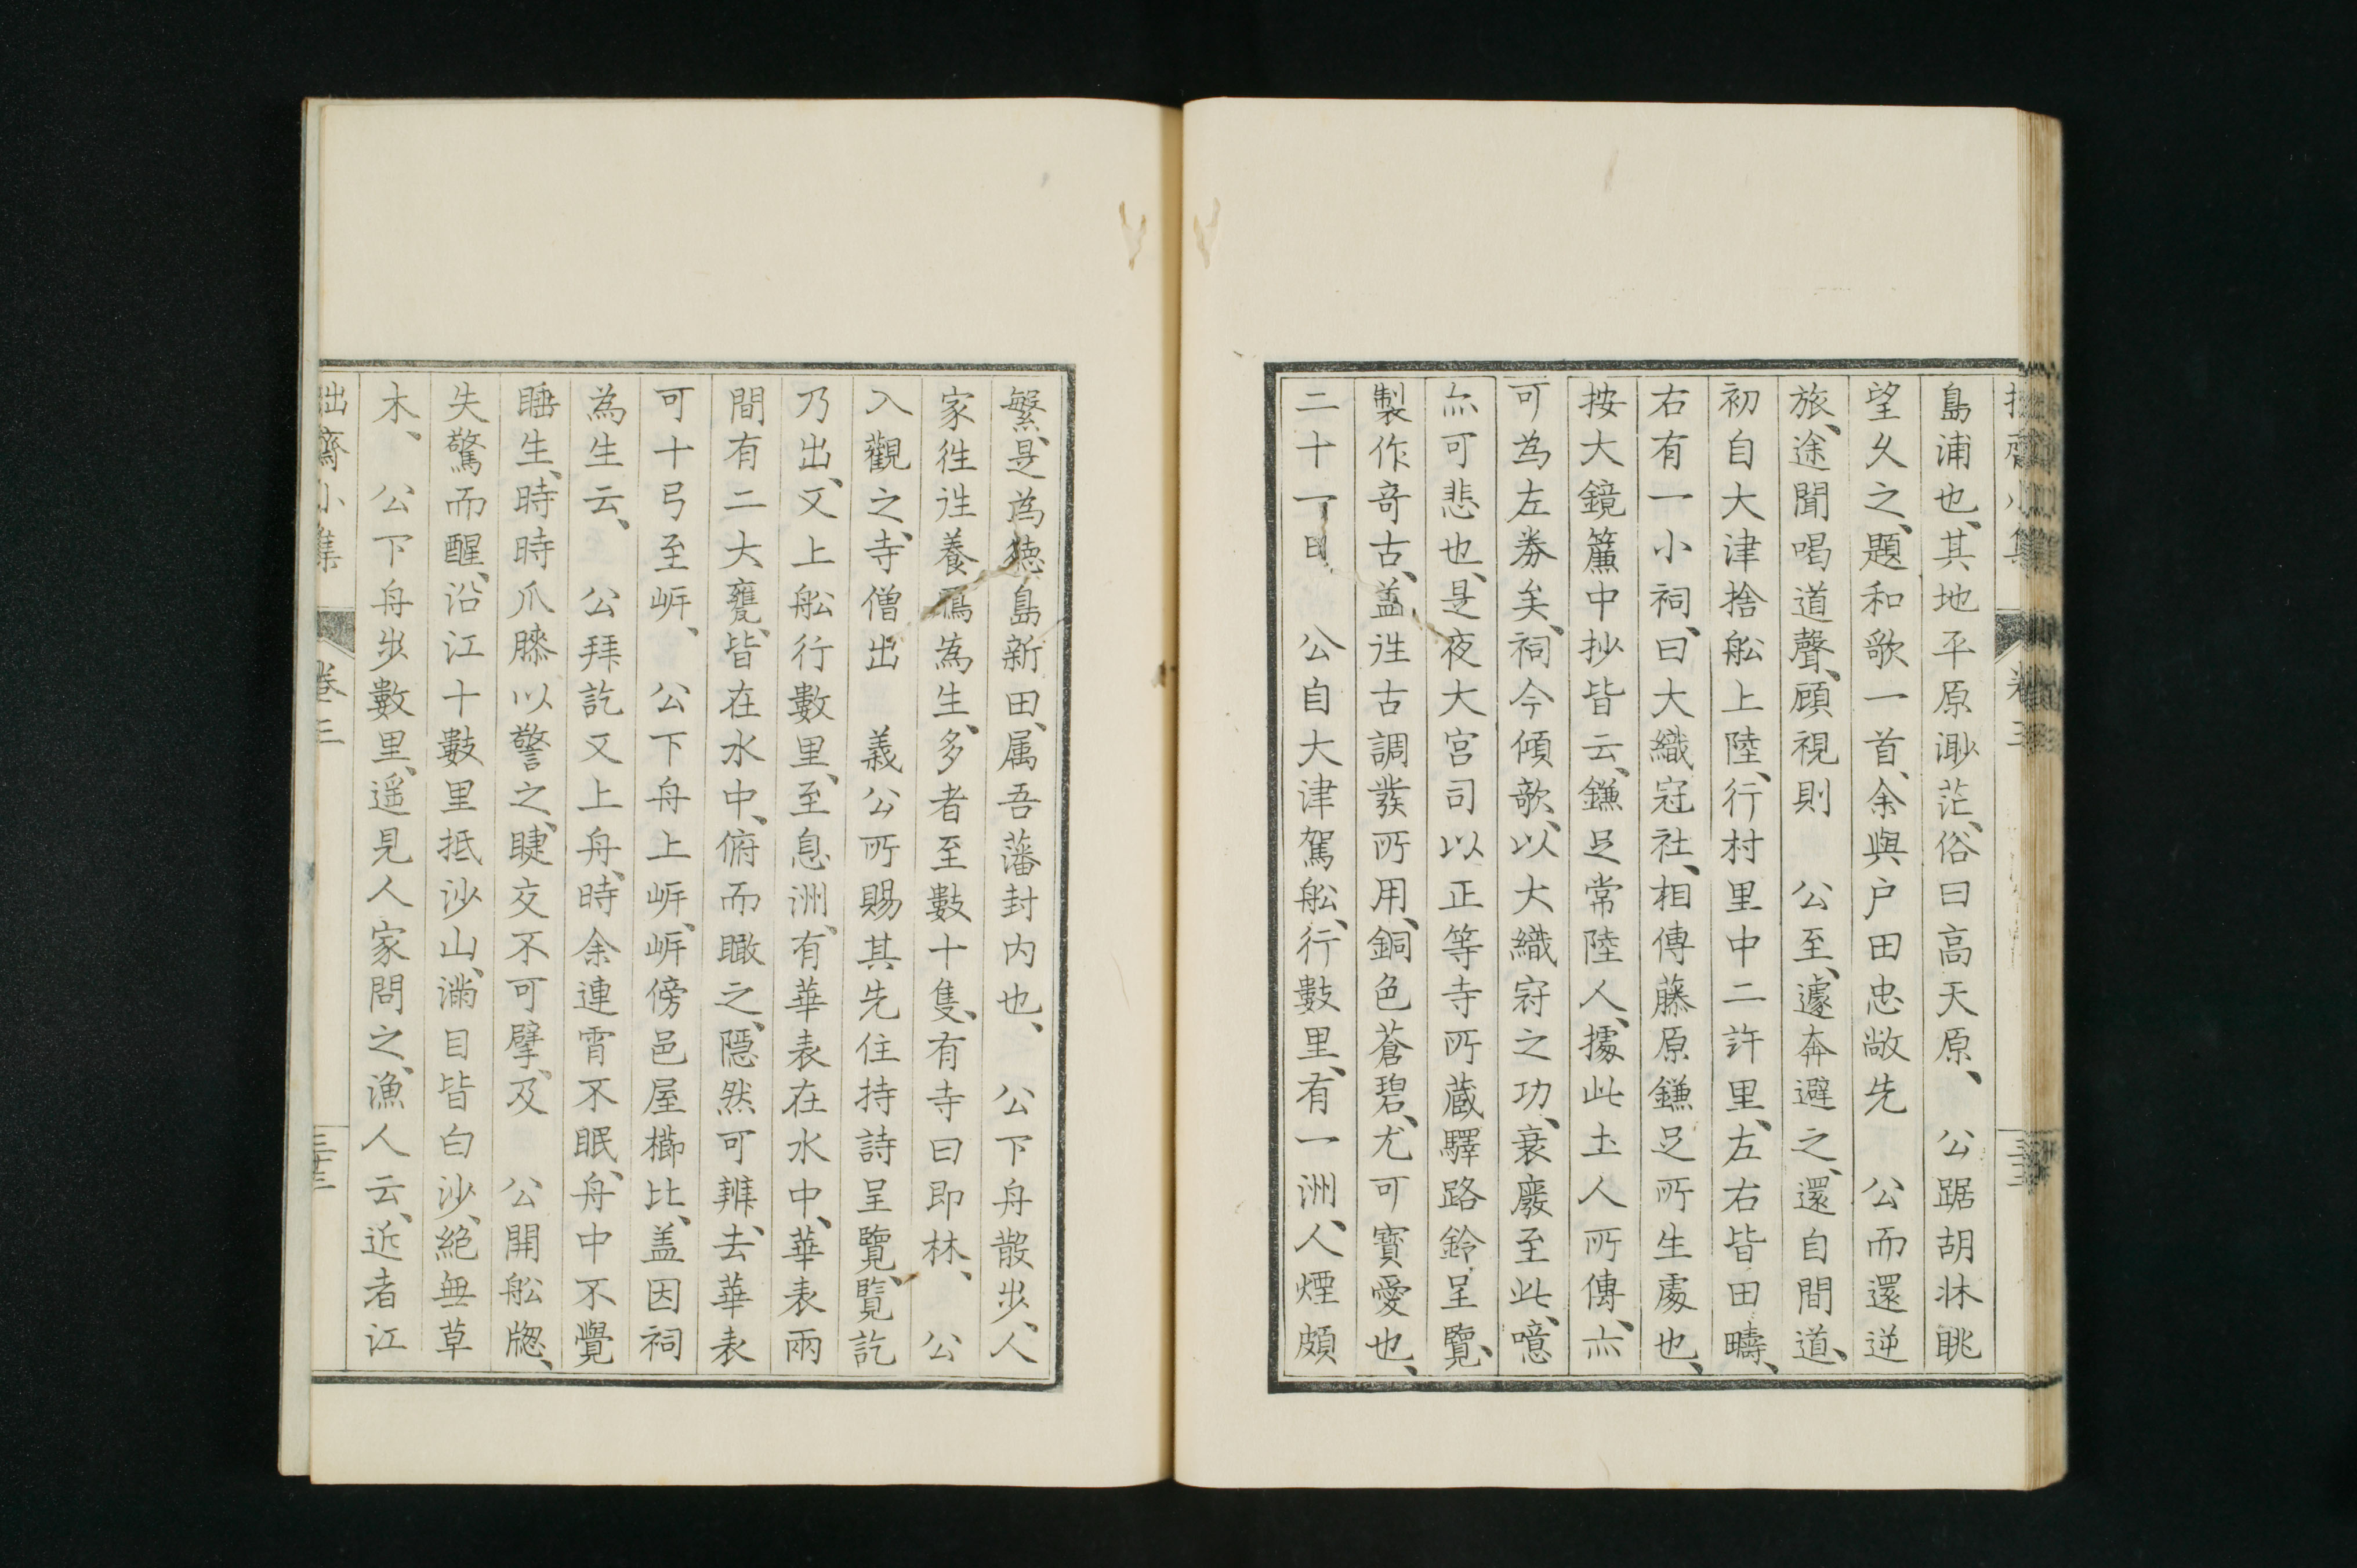 島浦也、其地平原渺茫、俗曰高天原、　公踞胡牀眺
望久之、題和歌一首、余與戸田忠敞先　公而還逆
旅、途聞喝道聲、顧視則　公至、遽奔避之、還自間道、
初自大津捨舩上陸、行村里中二許里、左右皆田疇、
右有一小祠、曰大織冠社、相傳藤原鎌足所生處也、
按大鏡簾中抄皆云、鎌足常陸人、據此土人所傳、亦
可為左券矣、祠今傾欹、以大織冠之功、衰廢至此、噫
亦可悲也、是夜大宮司以正等寺所蔵驛路鈴呈覽、
製作奇古、盖徃古調發所用、銅色蒼碧、尤可寳愛也、
二十一日　公自大津駕舩、行數里、有一洲、人煙頗
繁、是為徳島新田、属吾藩封内也、　公下舟散歩、人
家徃徃養鴈為生、多者至數十隻、有寺曰即林、　公
入觀之、寺僧出　義公所賜其先住持詩呈覽、覽訖
乃出、又上舩行數里、至息洲、有華表在水中、華表兩
間有二大甕、皆在水中、俯而瞰之、隠然可辨、去華表
可十弓至岍、　公下舟上岍、岍傍邑屋櫛比、盖因祠
為生云、　公拜訖又上舟、時余連宵不眠、舟中不覺
睡生、時時爪膝以警之、睫交不可擘、及　公開舩牕、
失驚而醒、沿江十數里抵沙山、滿目皆白沙、絶無草
木、　公下舟歩數里、遥見人家問之、漁人云、近者江
拙齋小集　卷三